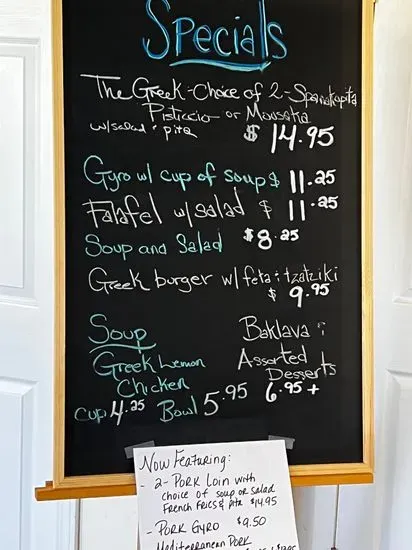 Specials
The Greek - Choice of 2 - Spanakopita
Pisticcio or Mousaka
w/salad & pita $14.95
Gyro w/ cup of soup $11.25
Falafel w/salad $11.25
Soup and Salad $8.25
Greek burger w/feta & tzatziki
$9.95
Soup
Greek Lemon
Chicken
Cup 4.25 Bowl 5.95
Baklava &
Assorted
Desserts
6.95+
Now Featuring:
- 2- Pork Loin with
choice of soup or salad
French Fries & pita $14.95
- Pork Gyro $9.50
Mediterranean Pork